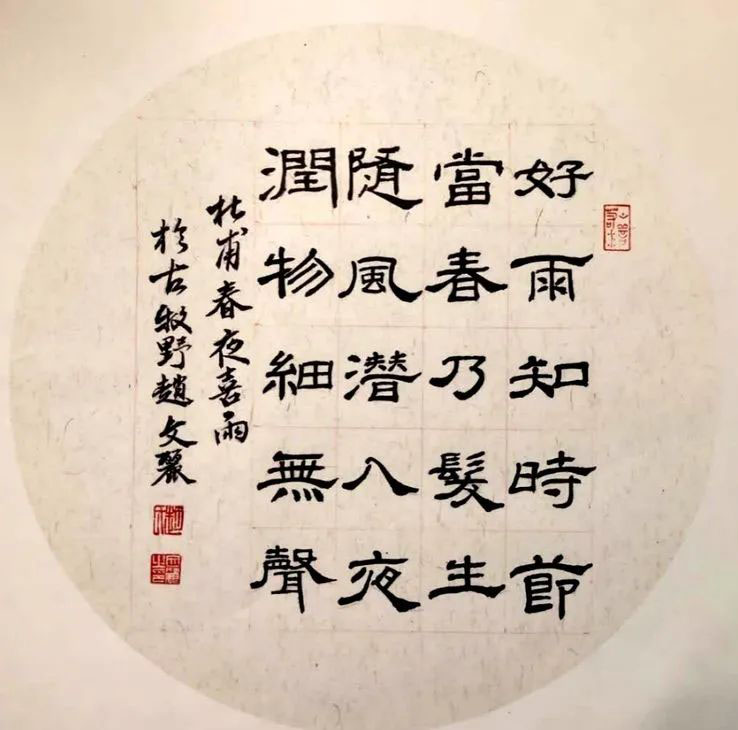 好雨知時節
當春乃髮生
隨風潛八夜
潤物細無聲
杜甫春夜喜雨
於古牧野趙文麗